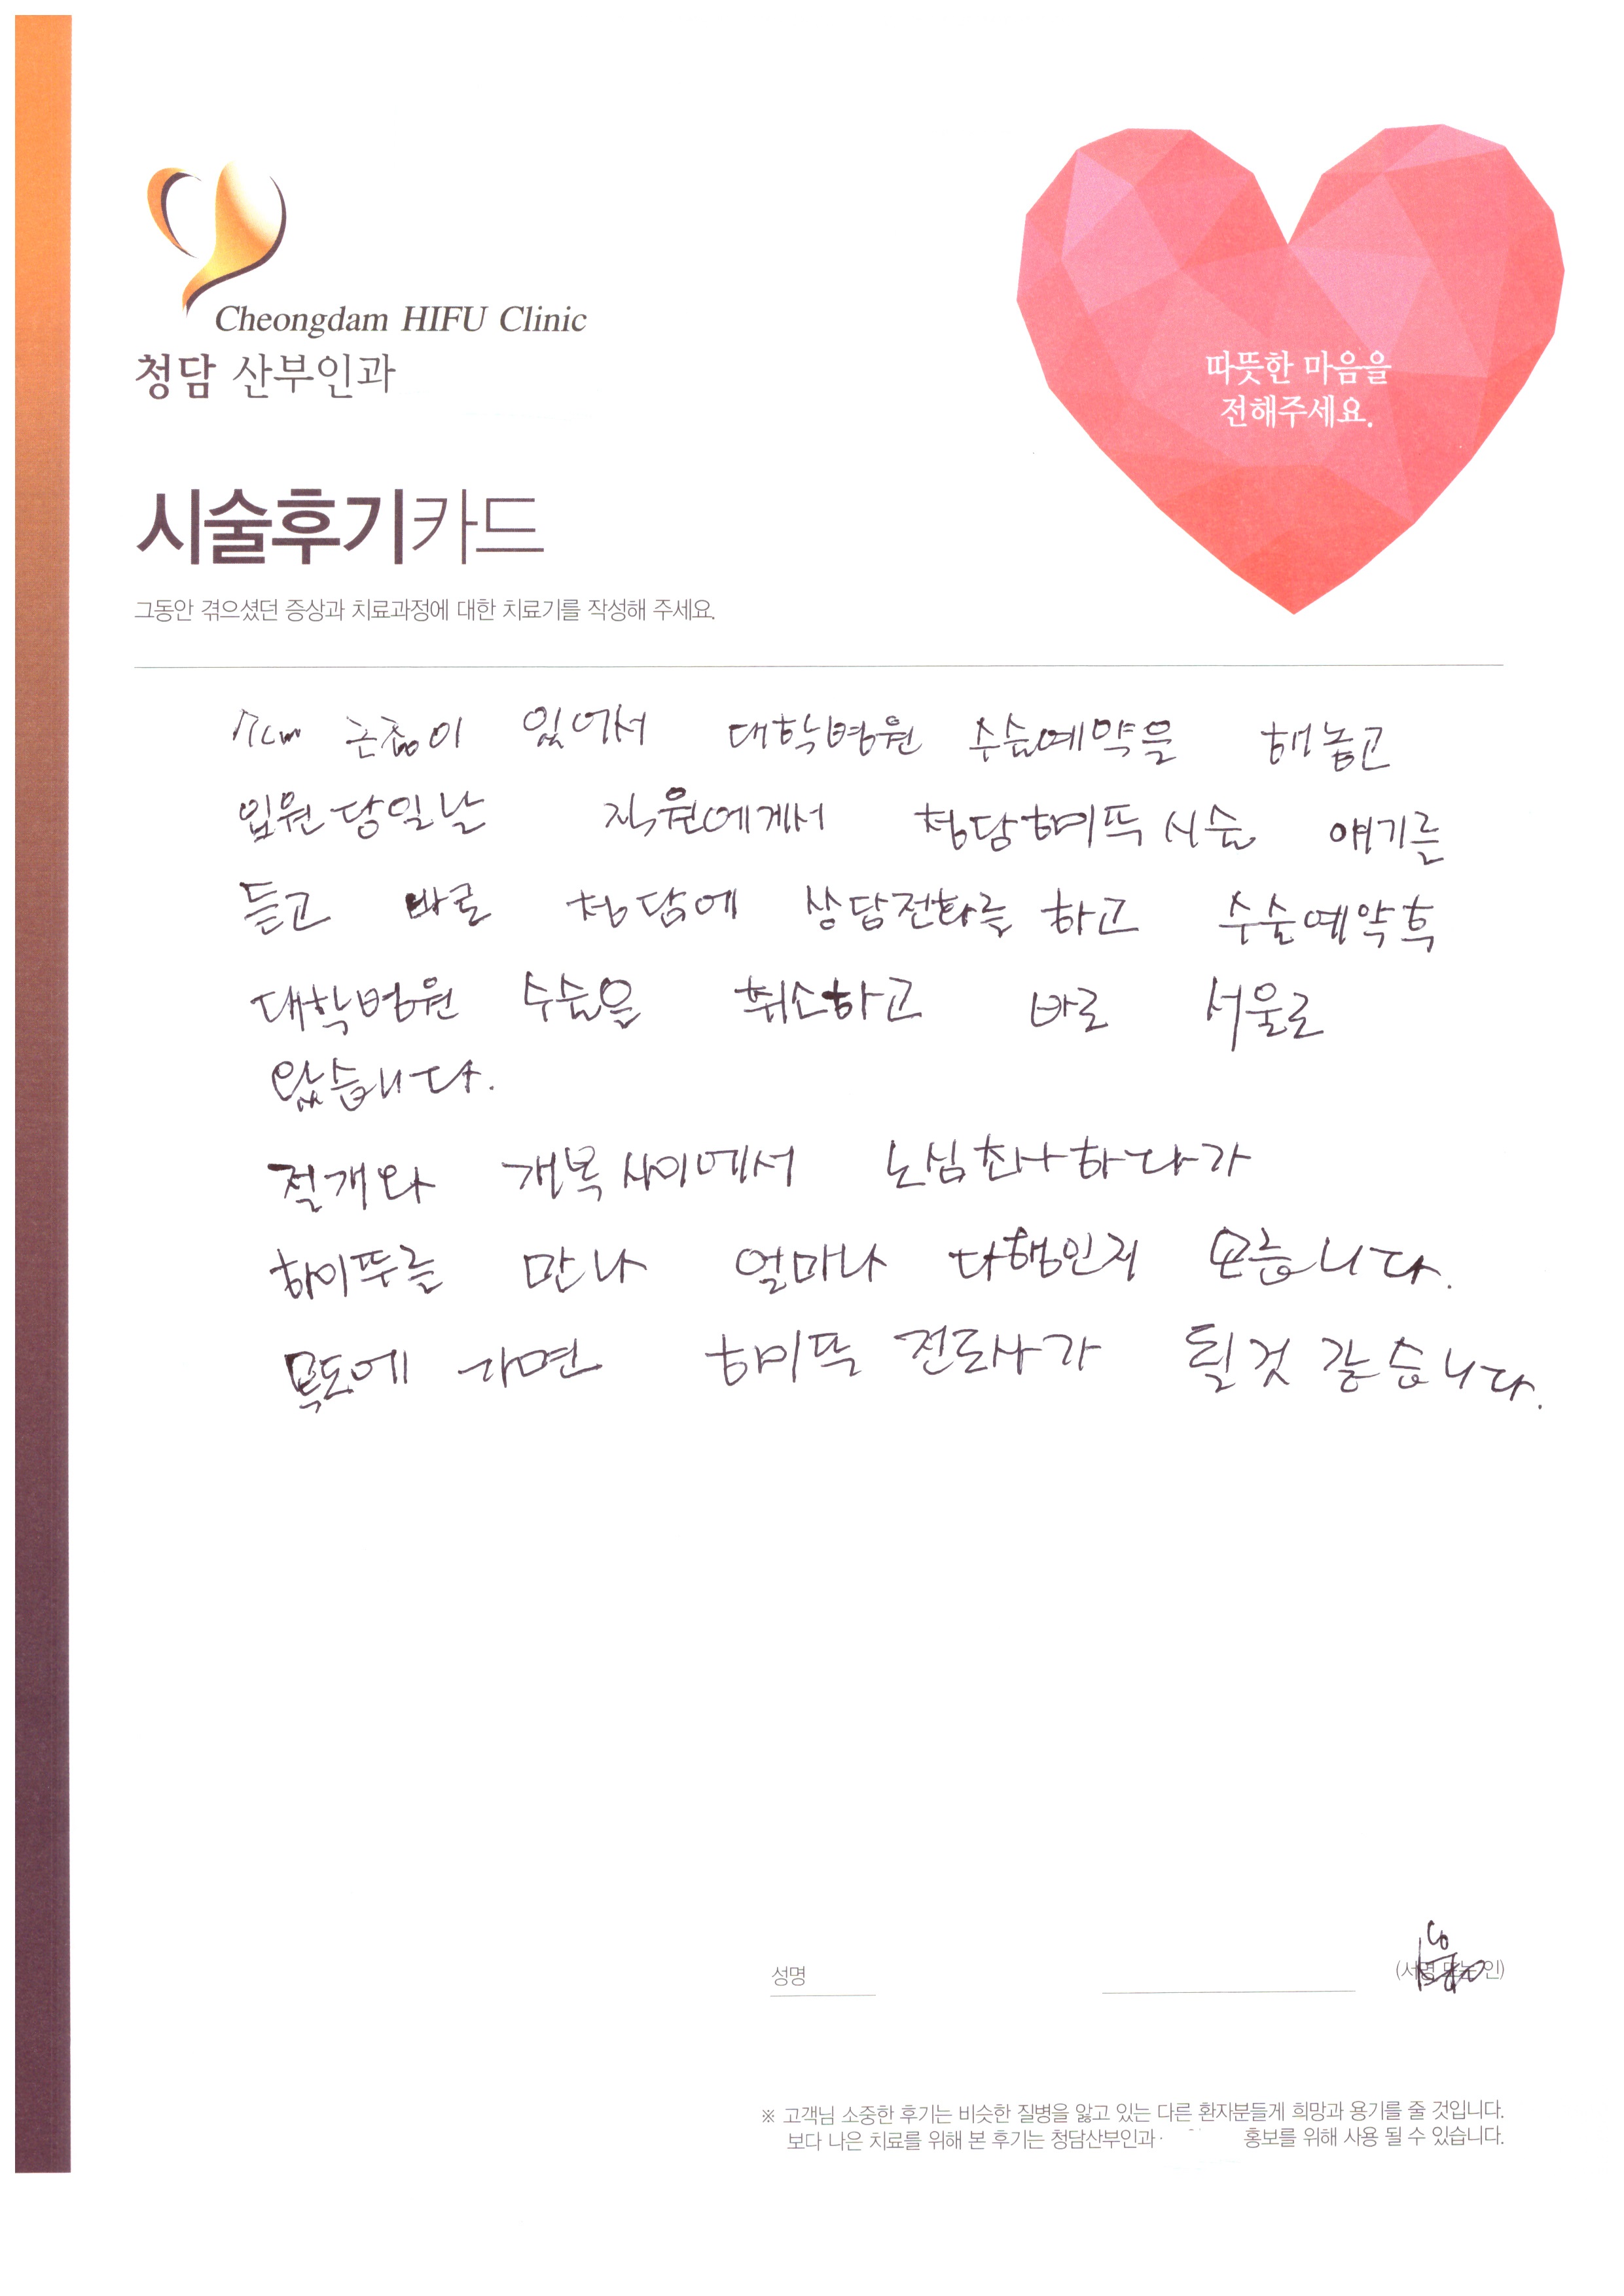 Cheongdam HIFU Clinic
청담 산부인과
따뜻한 마음을
전해주세요.
시술후기카드
그동안 겪으셨던 증상과 치료과정에 대한 치료기를 작성해 주세요.
7cm 근종이 있어서 대학병원 수술예약을 해놓고
입원당일날 직원에게서 청담하이뚜 시술 얘기를
듣고 바로 청담에 상담전화를 하고 수술예약후
대학병원 수술을 취소하고 바로 서울로
왔습니다.
절개와 개복사이에서 노심찬+하다가
하이뚜를 만나 얼마나 다행인지 모릅니다.
목포에 가면 하이뚜 전도사가 될것 같습니다.
성명
(서명 또는 인)
※ 고객님 소중한 후기는 비슷한 질병을 앓고 있는 다른 환자분들게 희망과 용기를 줄 것입니다.
보다 나은 치료를 위해 본 후기는 청담산부인과 홍보를 위해 사용 될 수 있습니다.